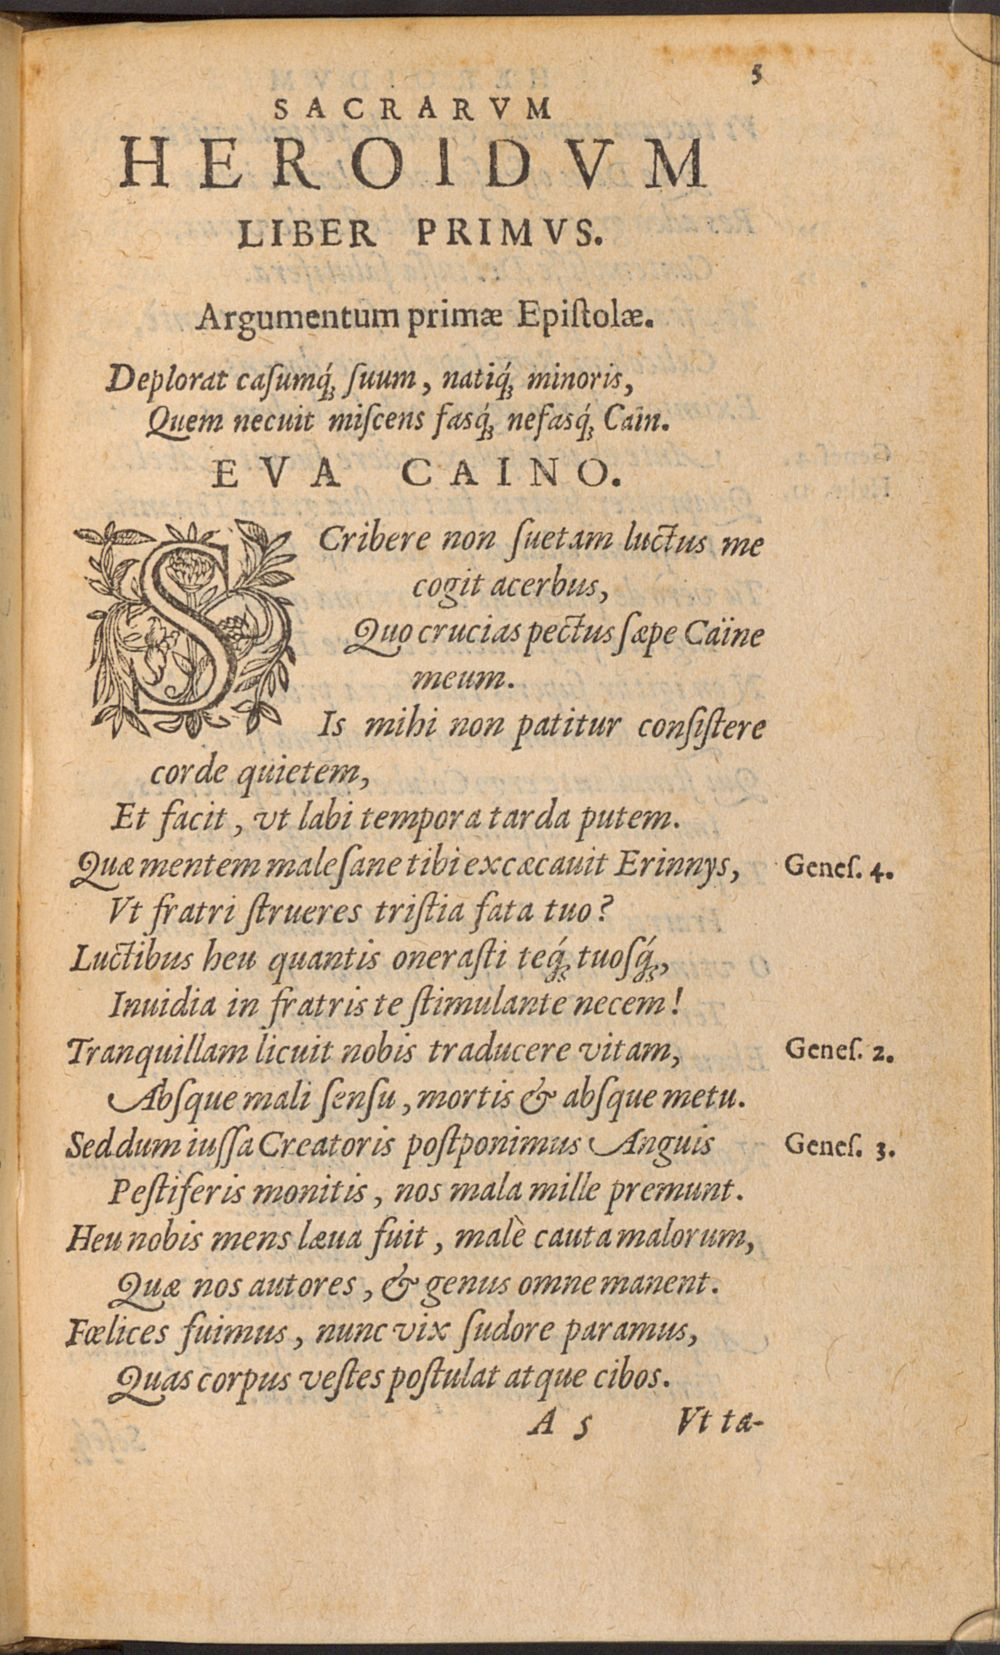 5
SACRARVM
HEROIDVM
LIBER PRIMVS.
Argumentum primæ Epiſtolæ.
Deplorat caſumq́; ſuum, natiq́; minoris,
Quem necuit miſcens faſq́; nefaſq́; Cain.
EVA CAINO.
SCribere non ſuetam luctus me
cogit acerbus,
Quo crucias pectus ſæpe Caïne
meum.
Is mihi non patitur conſiſtere
corde quietem,
Et facit, vt labi tempora tarda putem.
Quæ mentem maleſane tibi excæcauit Erinnys,
Geneſ. 4.
Vt fratri ſtrueres triſtia fata tuo?
Luctibus heu quantis oneraſti teq́; tuoſq́;,
Inuidia in fratris te ſtimulante necem!
Tranquillam licuit nobis traducere vitam,
Geneſ. 2.
Abſque mali ſenſu, mortis & abſque metu.
Sed dum iuſſa Creatoris poſtponimus Anguis
Geneſ. 3.
Peſtiferis monitis, nos mala mille premunt.
Heu nobis mens læua fuit, malè cauta malorum,
Quæ nos autores, & genus omne manent.
Fœlices fuimus, nunc vix ſudore paramus,
Quas corpus veſtes poſtulat atque cibos.
A 5
Vt tæ-